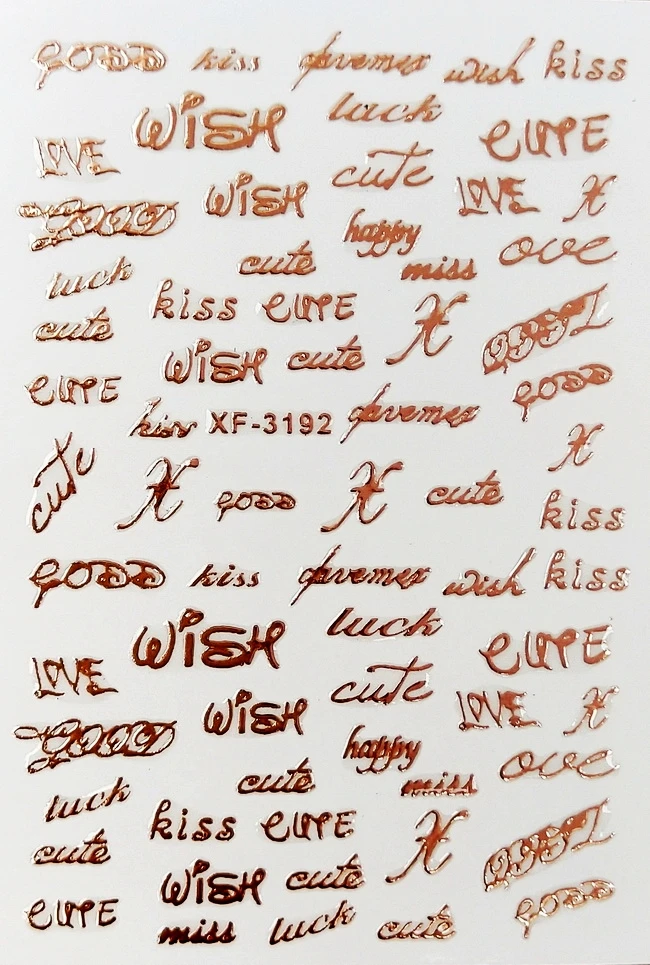 GOOD kiss davemex wish kiss
WISH luck CUTE
LOVE cute
WISH LOVE X
GOOD happy ove
luck cute miss
kiss CUTE X
cute WISH cute
CUTE GOOD
kiss XF-3192 davemex
cute X
X GOOD X cute kiss
GOOD kiss davemex wish kiss
WISH luck CUTE
LOVE cute
WISH LOVE X
GOOD happy ove
luck cute miss
kiss CUTE X
cute WISH cute
CUTE GOOD
miss luck cute